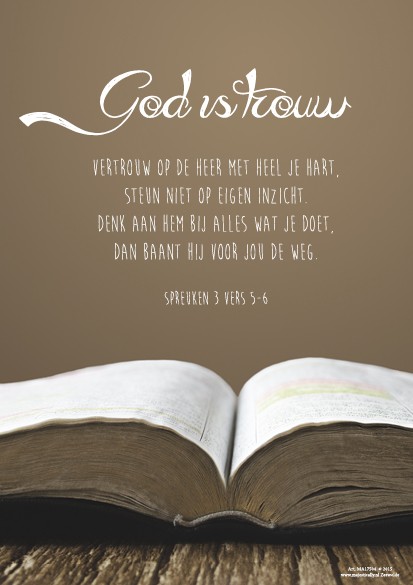 God is trouw
VERTROUW OP DE HEER MET HEEL JE HART,
STEUN NIET OP EIGEN INZICHT.
DENK AAN HEM BIJ ALLES WAT JE DOET,
DAN BAANT HIJ VOOR JOU DE WEG.
SPREUKEN 3 VERS 5-6
Art. MA1794